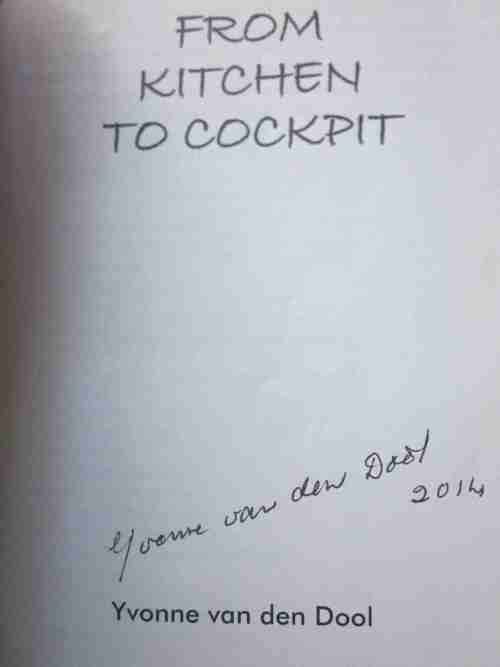 FROM
KITCHEN
TO COCKPIT
Yvonne van den Dool
2014
Yvonne van den Dool